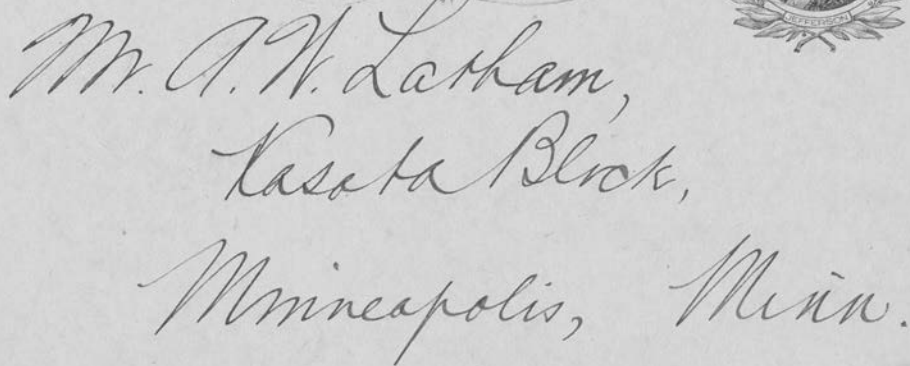 JEFFERSON
Mr. A. W. Latham,
Kasota Block,
Minneapolis, Minn.